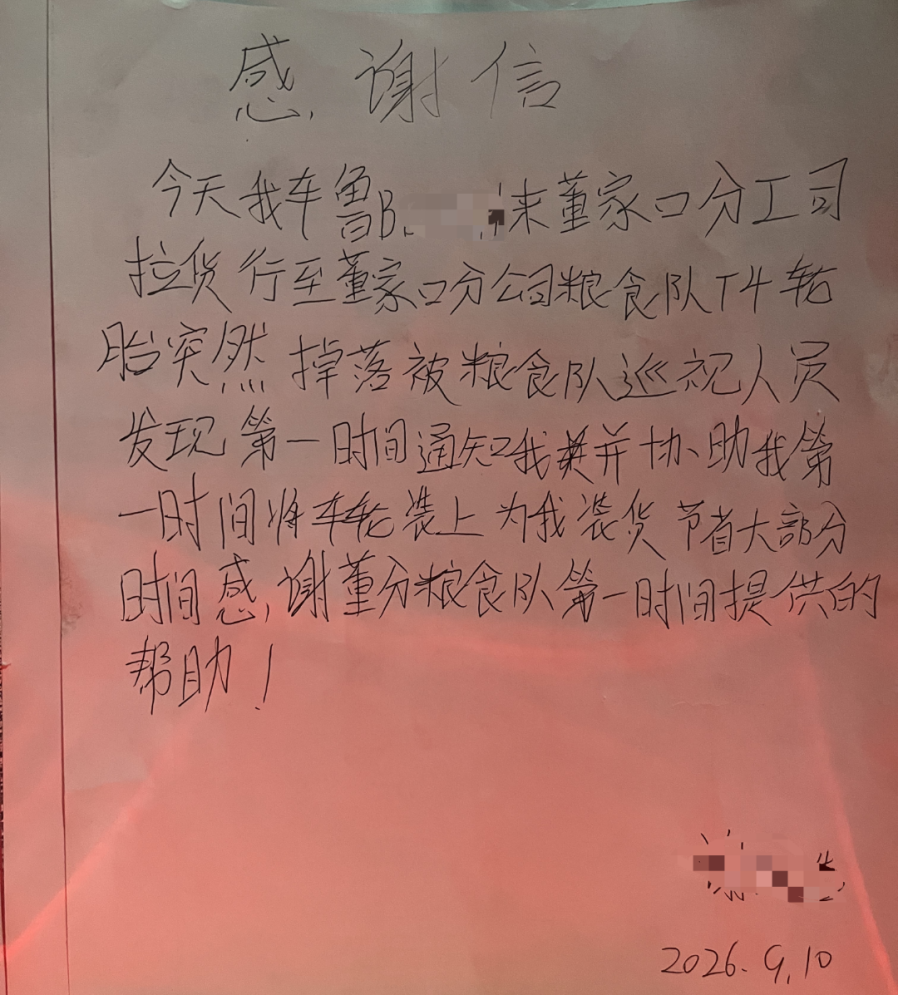 感谢信
今天我车鲁B 来董家口分工司
拉货行至董家口分公司粮食队T4轮
胎突然掉落被粮食队巡视人员
发现第一时间通知我并协助我第
一时间将车轮装上为我装货节省大部分
时间感谢董分粮食队第一时间提供的
帮助!
2026.9.10